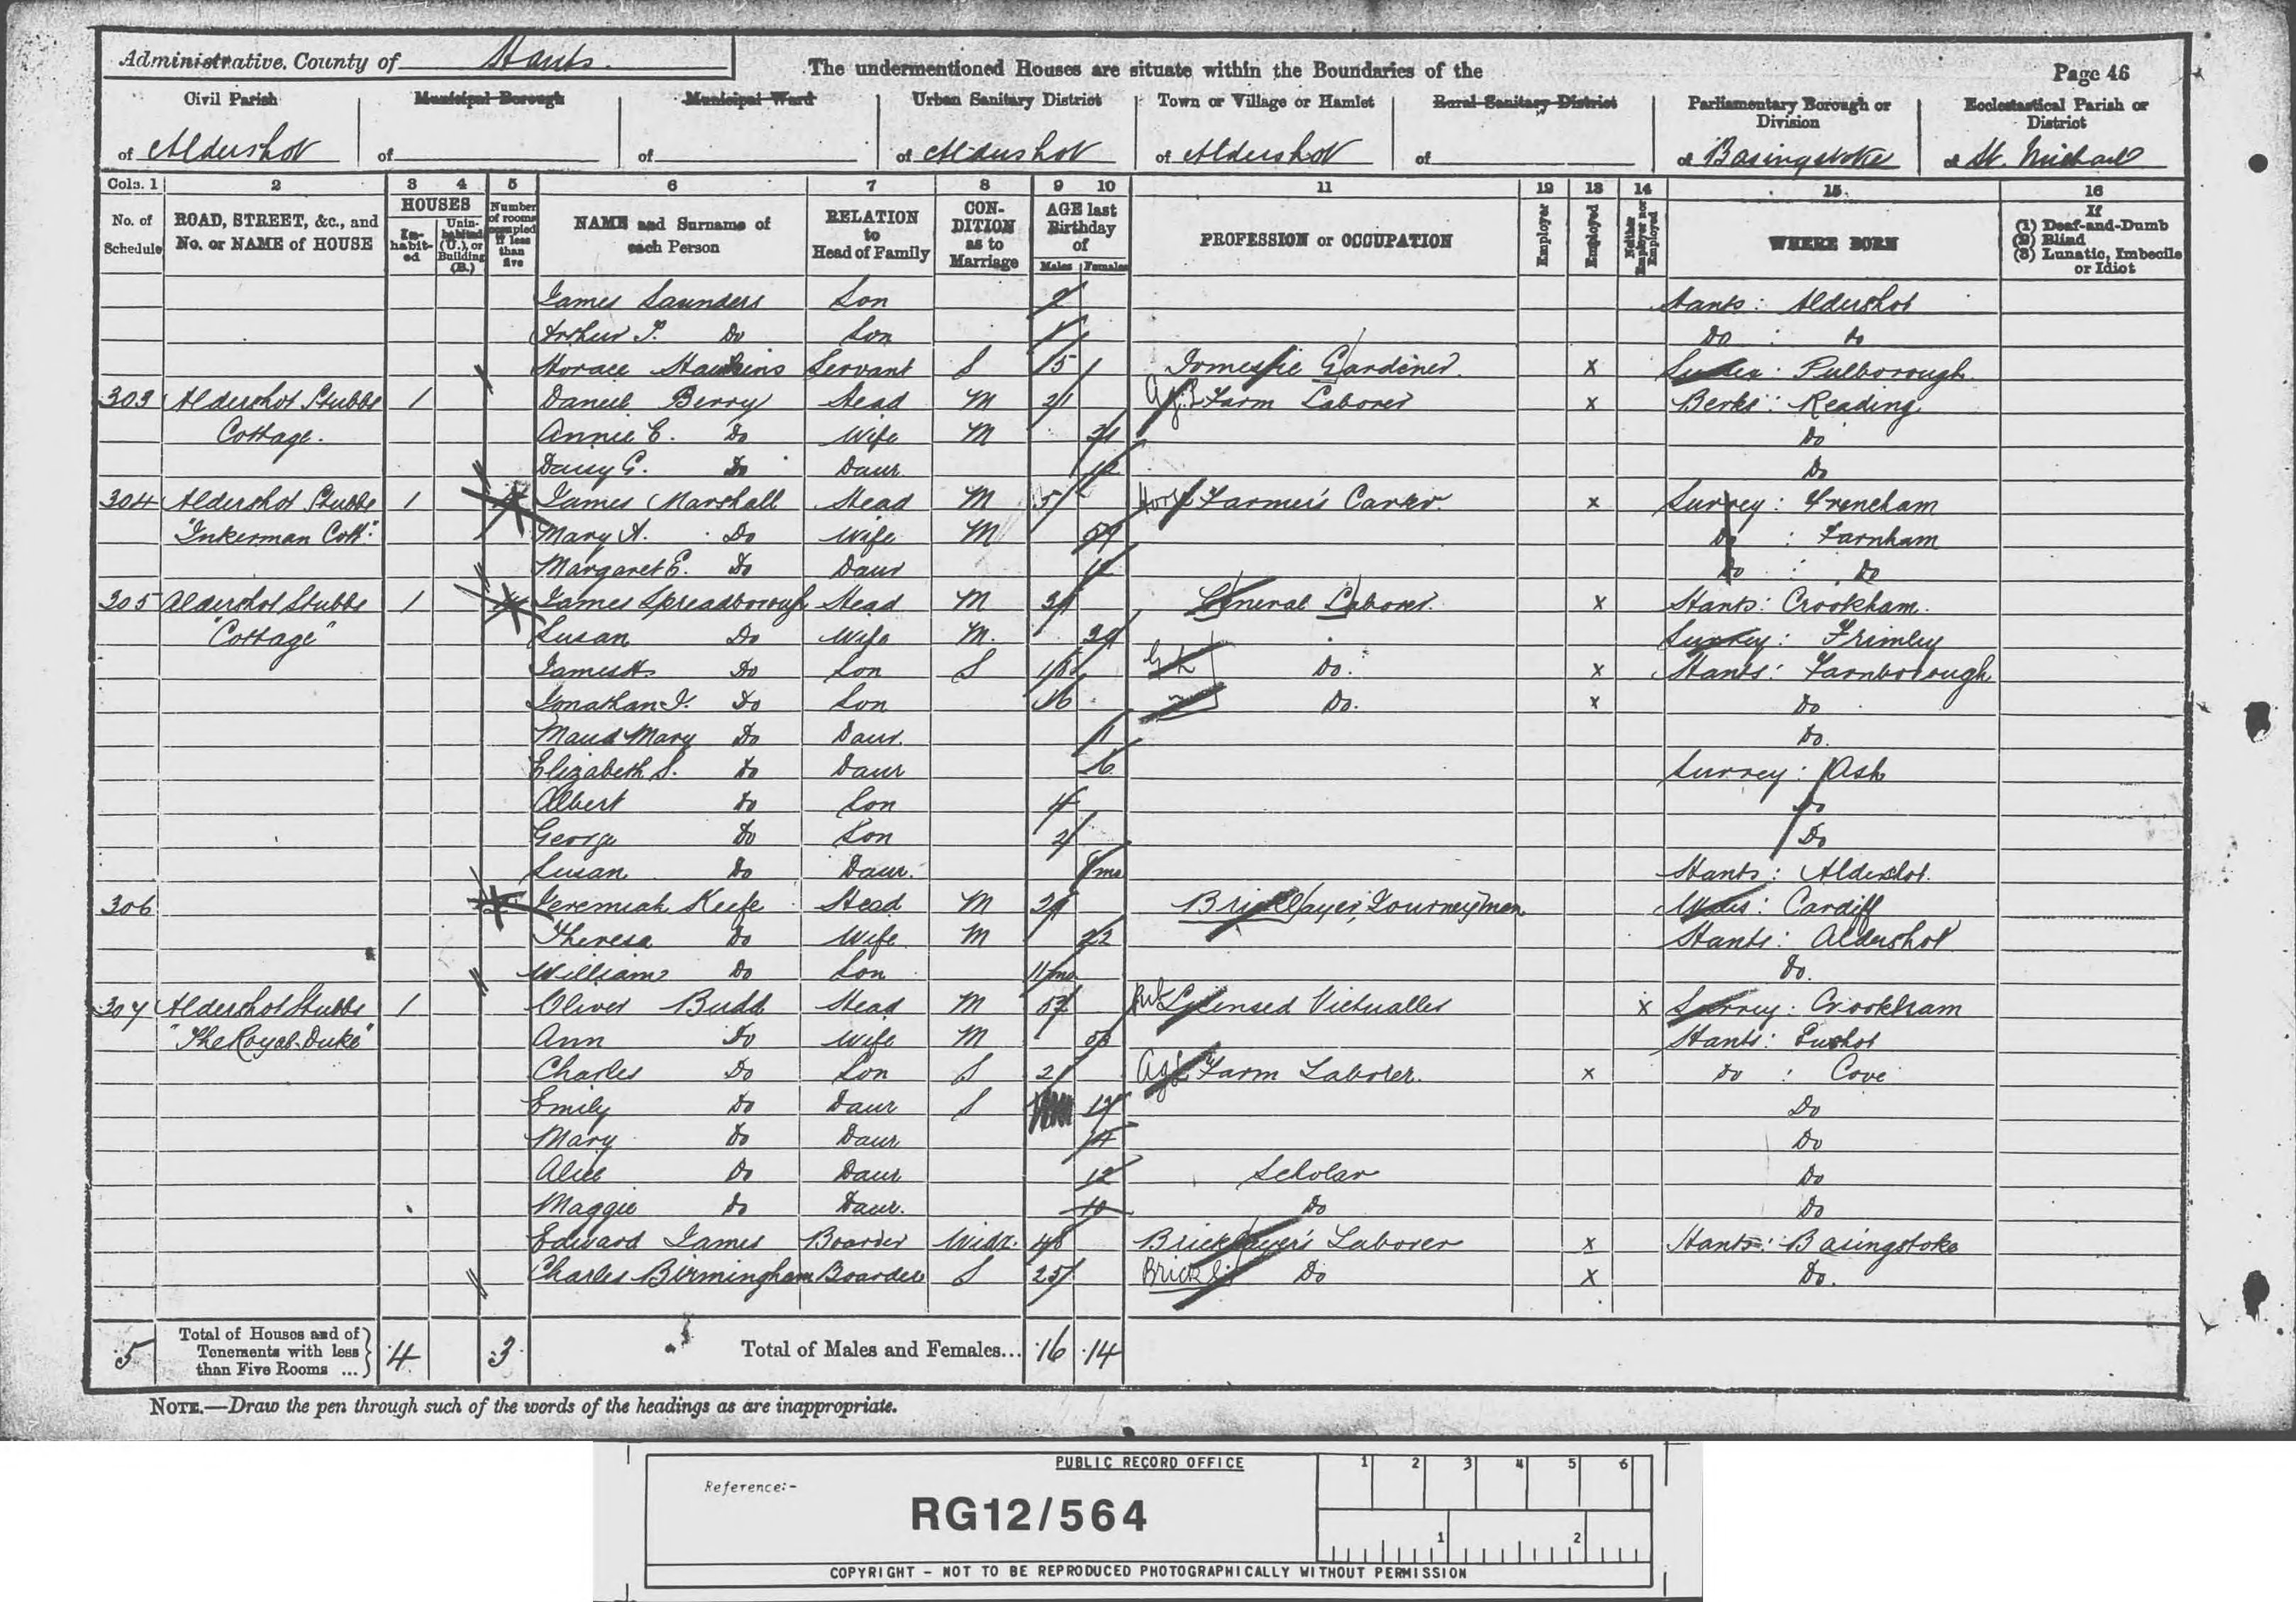 Administrative County of Hants. The undermentioned Houses are situate within the Boundaries of the Page 46
Civil Parish Municipal Borough Municipal Ward Urban Sanitary District Town or Village or Hamlet Rural Sanitary District Parliamentary Borough or Division Ecclesiastical Parish or District
of Aldershot of of of Aldershot of Aldershot of of Basingstoke of St. Michael
Cols. 1 2 3 4 5 6 7 8 9 10 11 12 13 14 15 16
No. of Schedule ROAD, STREET, &c., and No. or NAME of HOUSE HOUSES Inhabited Uninhabited (U.), or Building (B.) Number of rooms occupied if less than five NAME and Surname of each Person RELATION to Head of Family CONDITION as to Marriage AGE last Birthday of Males Females PROFESSION or OCCUPATION Employer Employed Neither Employer nor Employed WHERE BORN If (1) Deaf-and-Dumb (2) Blind (3) Lunatic, Imbecile or Idiot
James Saunders Son 2 Hants: Aldershot
Arthur T. Do Son 1 Do : Do
Horace Hawkins Servant S 15 Domestic Gardener. x Sussex: Pulborough
303 Aldershot Stubbs 1 Daniel Berry Head M 21 Ag. L Farm Laborer x Berks: Reading
Cottage. Annie E. Do Wife M 21 Do
Daisy G. Do Daur Do
304 Aldershot Stubbs 1 4 James Marshall Head M 51 Farmer's Carter. x Surrey: Frencham
"Inkerman Cott." Mary A. Do Wife M 59 Do : Farnham
Margaret E. Do Daur Do : Do
305 Aldershot Stubbs 1 4 James Spreadborough Head M General Laborer. x Hants: Crookham.
"Cottage" Susan Do Wife M. 39 Surrey: Frimley
James H. Do Son S 18 G L Do. x Hants: Farnborough
Jonathan J. Do Son 16 Do. x Do
Maud Mary Do Daur. 11 Do.
Elizabeth S. Do Daur 6 Surrey: Ash
Albert Do Son 4 Do
George Do Son 2 Do
Susan Do Daur. mo Hants: Aldershot.
306 Jeremiah Keefe Head M 29 Bricklayer, Journeyman Wales: Cardiff
Theresa Do Wife M 22 Hants: Aldershot
William Do Son 11 mo Do.
307 Aldershot Stubbs 1 Oliver Budd Head M 57 Licensed Victualler x Surrey: Crookham
"The Royal Duke" Ann Do Wife M 53 Hants: Eushot
Charles Do Son S 21 Ag L Farm Laborer. x Do : Cove
Emily Do Daur S 17 Do
Mary Do Daur 14 Do
Alice Do Daur 12 Scholar Do
Maggie Do Daur. 10 Do Do
Edward James Boarder Widr. 48 Bricklayer's Laborer x Hants: Basingstoke
Charles Birmingham Boarder S 25 Brick Do x Do.
5 Total of Houses and of Tenements with less than Five Rooms ... 4 3 Total of Males and Females... 16 14
NOTE.—Draw the pen through such of the words of the headings as are inappropriate.
PUBLIC RECORD OFFICE 1 2 3 4 5 6
Reference:-
RG12/564
1 2
COPYRIGHT - NOT TO BE REPRODUCED PHOTOGRAPHICALLY WITHOUT PERMISSION